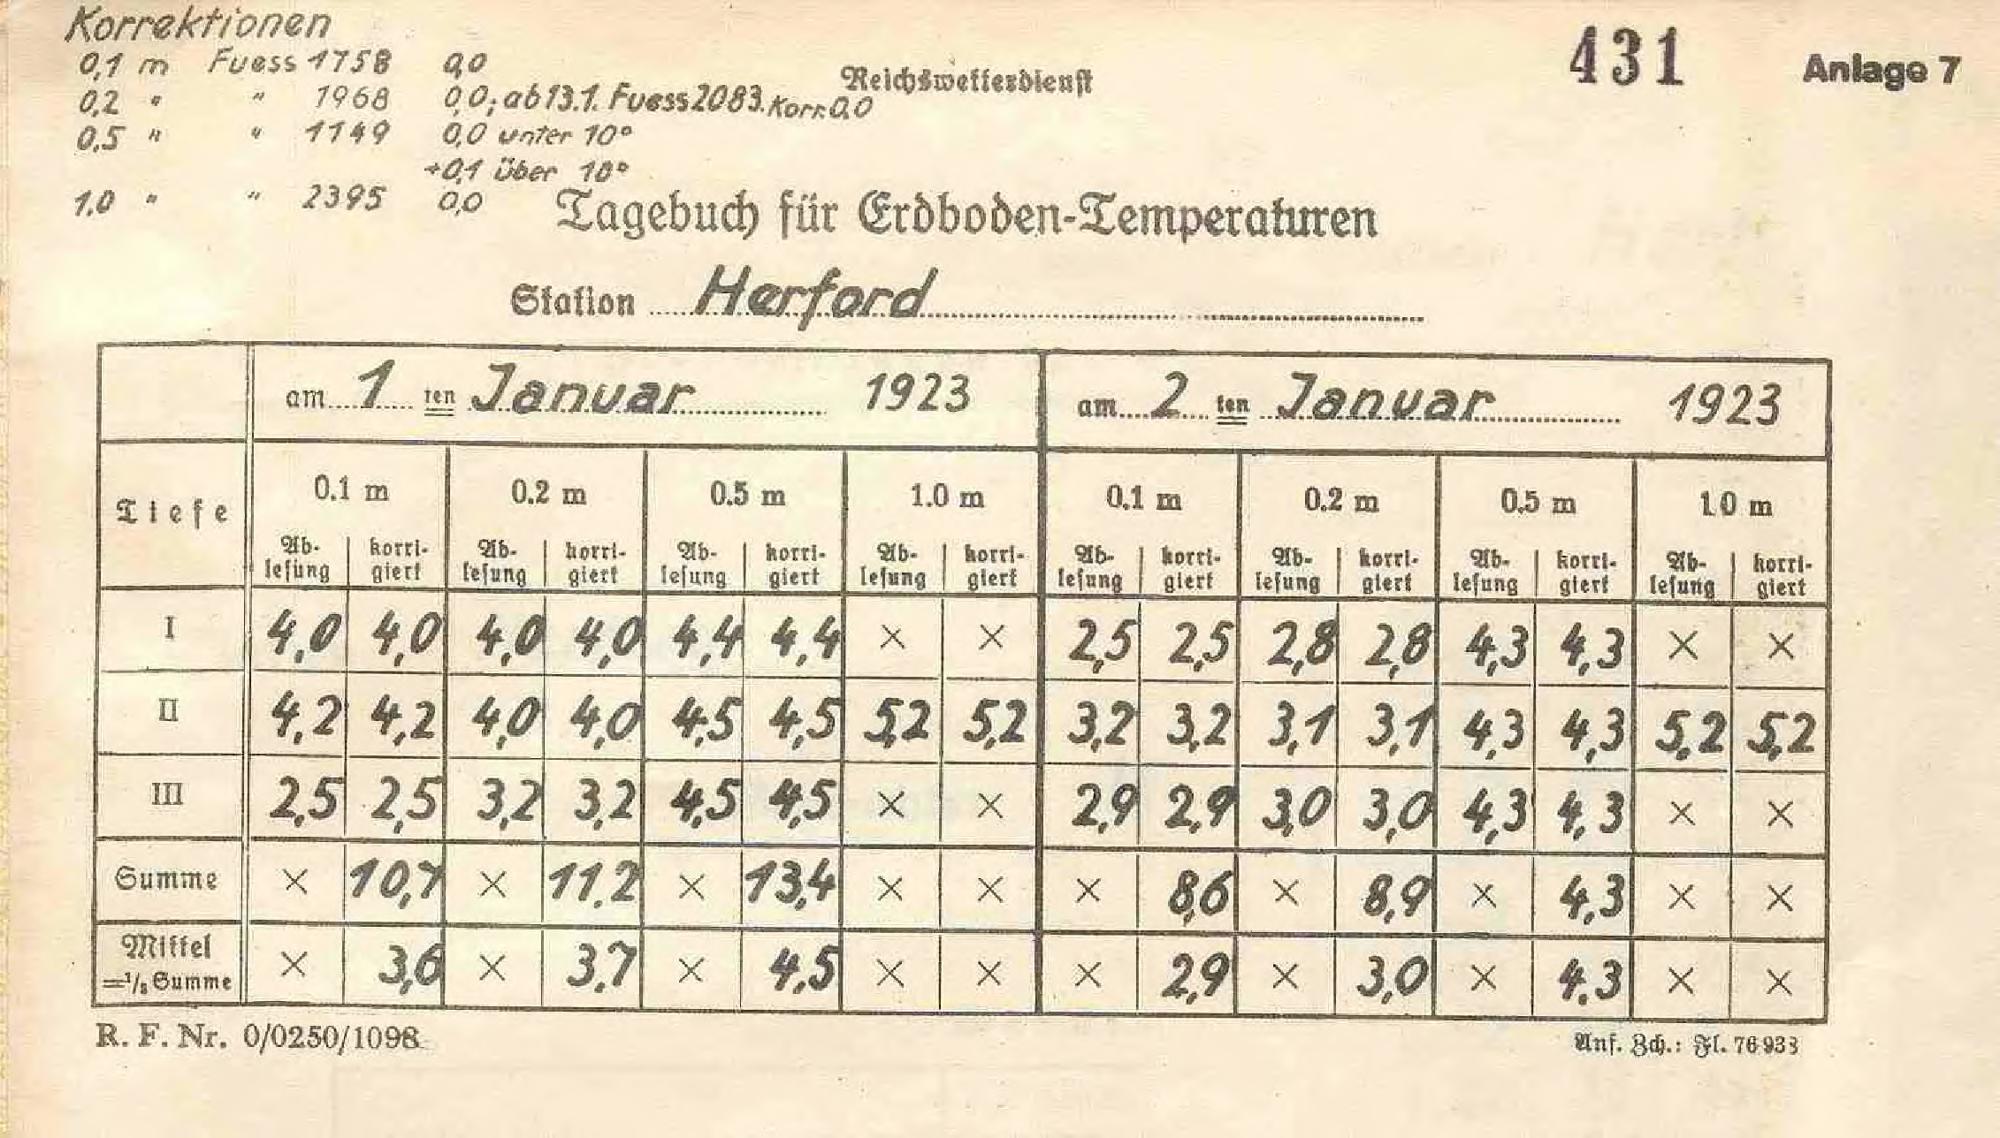 Korrektionen
0,1 m Fuess 1758 0,0
0,2 " " 1968 0,0; ab 13.1. Fuess 2083. Korr. 0,0
0,5 " " 1149 0,0 unter 10°
+0,1 über 10°
1,0 " " 2395 0,0
Reichswetterdienst
431
Anlage 7
Tagebuch für Erdboden-Temperaturen
Station Herford
am 1 ten Januar 1923 am 2 ten Januar 1923
Tiefe 0.1 m 0.2 m 0.5 m 1.0 m 0.1 m 0.2 m 0.5 m 1.0 m
Ab- korri- Ab- korri- Ab- korri- Ab- korri- Ab- korri- Ab- korri- Ab- korri- Ab- korri-
lesung giert lesung giert lesung giert lesung giert lesung giert lesung giert lesung giert lesung giert
I 4,0 4,0 4,0 4,0 4,4 4,4 × × 2,5 2,5 2,8 2,8 4,3 4,3 × ×
II 4,2 4,2 4,0 4,0 4,5 4,5 5,2 5,2 3,2 3,2 3,1 3,1 4,3 4,3 5,2 5,2
III 2,5 2,5 3,2 3,2 4,5 4,5 × × 2,9 2,9 3,0 3,0 4,3 4,3 × ×
Summe × 10,7 × 11,2 × 13,4 × × × 8,6 × 8,9 × 4,3 × ×
Mittel × 3,6 × 3,7 × 4,5 × × × 2,9 × 3,0 × 4,3 × ×
=1/3 Summe
R. F. Nr. 0/0250/1098
Anf. Zch.: Fl. 76933